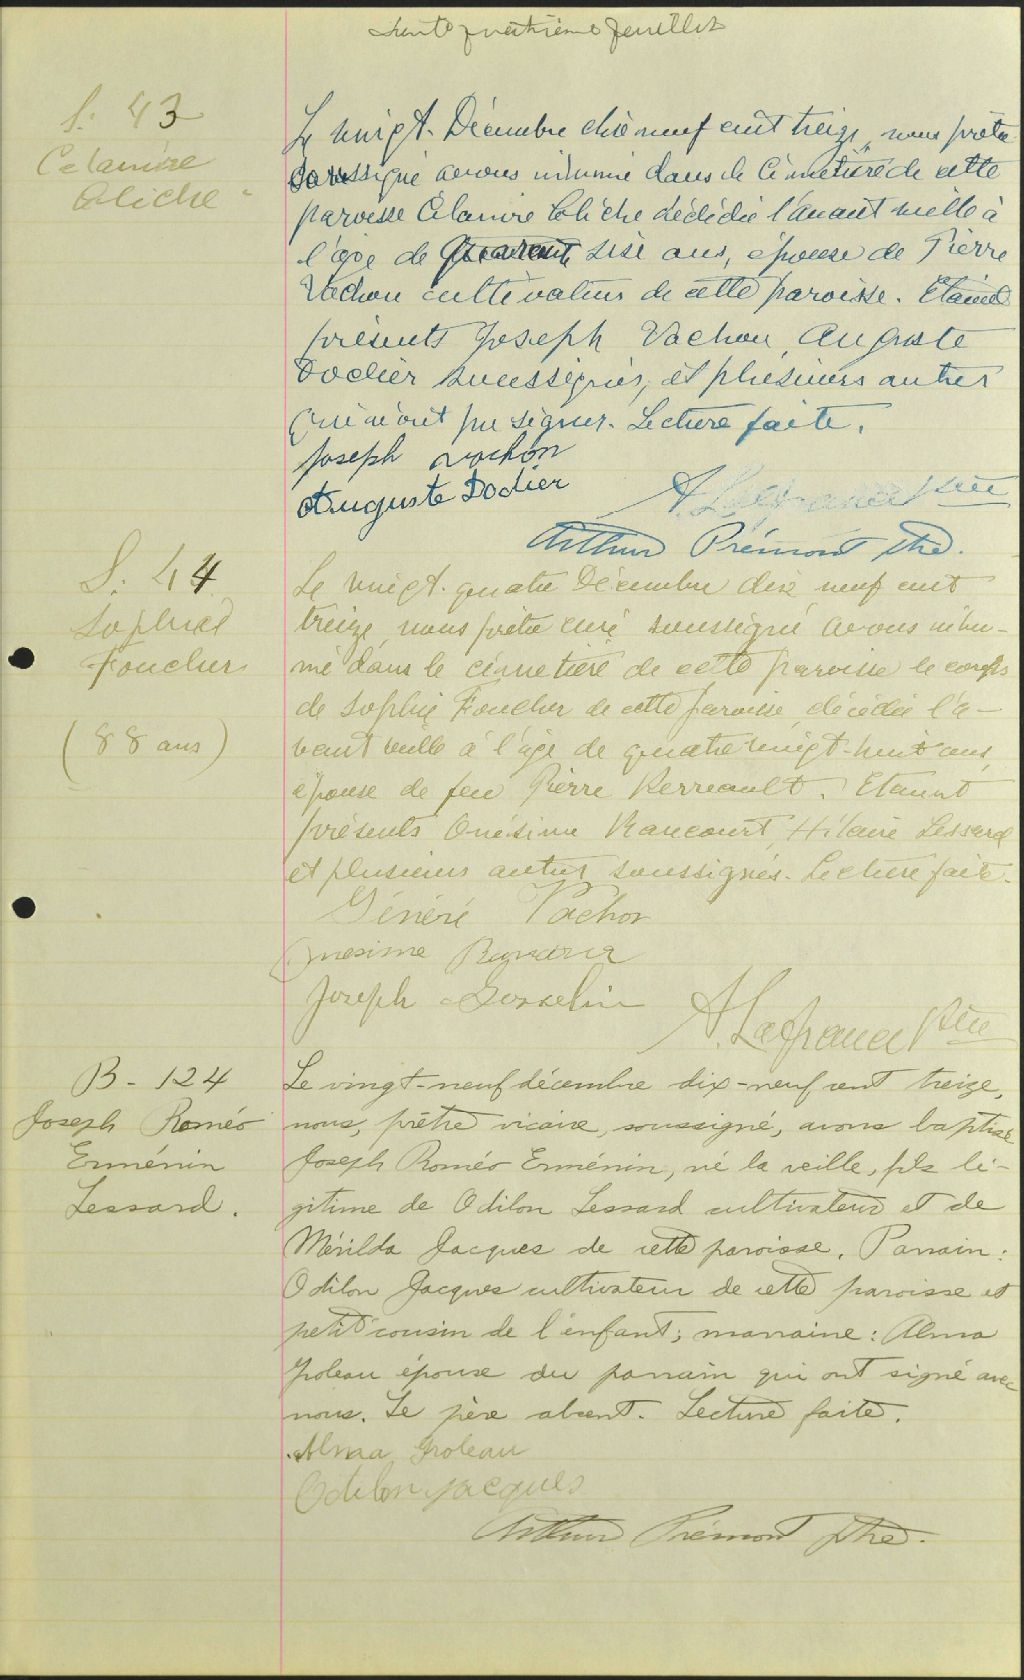 feuillet
S. 43
Célanire
Cliche
Le vingt Décembre dix neuf cent treize, nous prêtre
soussigné avons inhumé dans le Cimetière de cette
paroisse Célanire Cliche décédée l'avant veille à
l'âge de sise ans, épouse de Pierre
Vachon cultivateur de cette paroisse. Etaient
présents Joseph Vachon, Auguste
Dodier soussignés, et plusieurs autres
qui n'ont pu signer. Lecture faite.
Joseph vachon
Auguste Dodier
A. Lafrance Ptre
Arthur Prémont ptre.
S. 44
Sophie
Foucher
(88 ans)
Le vingt-quatre Décembre dix neuf cent
treize, nous prêtre curé soussigné avons inhu-
mé dans le cimetière de cette paroisse le corps
de Sophie Foucher de cette paroisse, décédée l'a-
vant veille à l'âge de quatre vingt-huit ans,
épouse de feu Pierre Perreault. Etaient
présents Onésime Rancourt, Hilaire Lessard
et plusieurs autres soussignés. Lecture faite.
Généré Vachon
Onesime
Joseph Gosselin
A. Lafrance Ptre
B - 124
Joseph Roméo
Erménin
Lessard.
Le vingt-neuf décembre dix-neuf cent treize,
nous, prêtre vicaire, soussigné, avons baptisé
Joseph Roméo Erménin, né la veille, fils lé-
gitime de Odilon Lessard cultivateur et de
Mérilda Jacques de cette paroisse. Parrain:
Odilon Jacques cultivateur de cette paroisse et
petit cousin de l'enfant; marraine: Alma
Groleau épouse du parrain qui ont signé avec
nous. Le père absent. Lecture faite.
Alma Groleau
Odilon jacques
Arthur Prémont ptre.